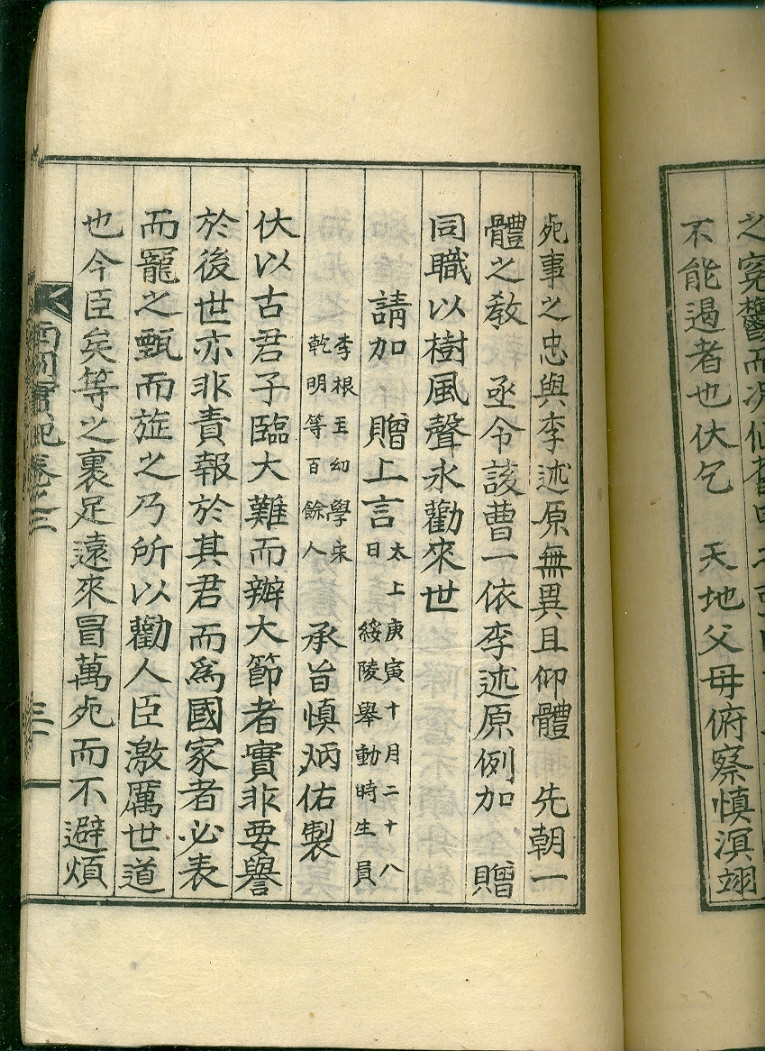 之寃鬱而
不能遏者也伏乞 天地父母俯察愼溟翊
死事之忠與李述原無異且仰體 先朝一
體之敎 亟令該曹一依李述原例加 贈
同職以樹風聲永勸來世
請加 贈上言 太上庚寅十月二十八
日 綏陵擧動時生員
李根玉幼學宋
乾明等百餘人 承旨愼炳佑製
伏以古君子臨大難而辦大節者實非要譽
於後世亦非責報於其君而爲國家者必表
而寵之甄而㫌之乃所以勸人臣激厲世道
也今臣矣等之裹足遠來冒萬死而不避煩
實紀卷之三